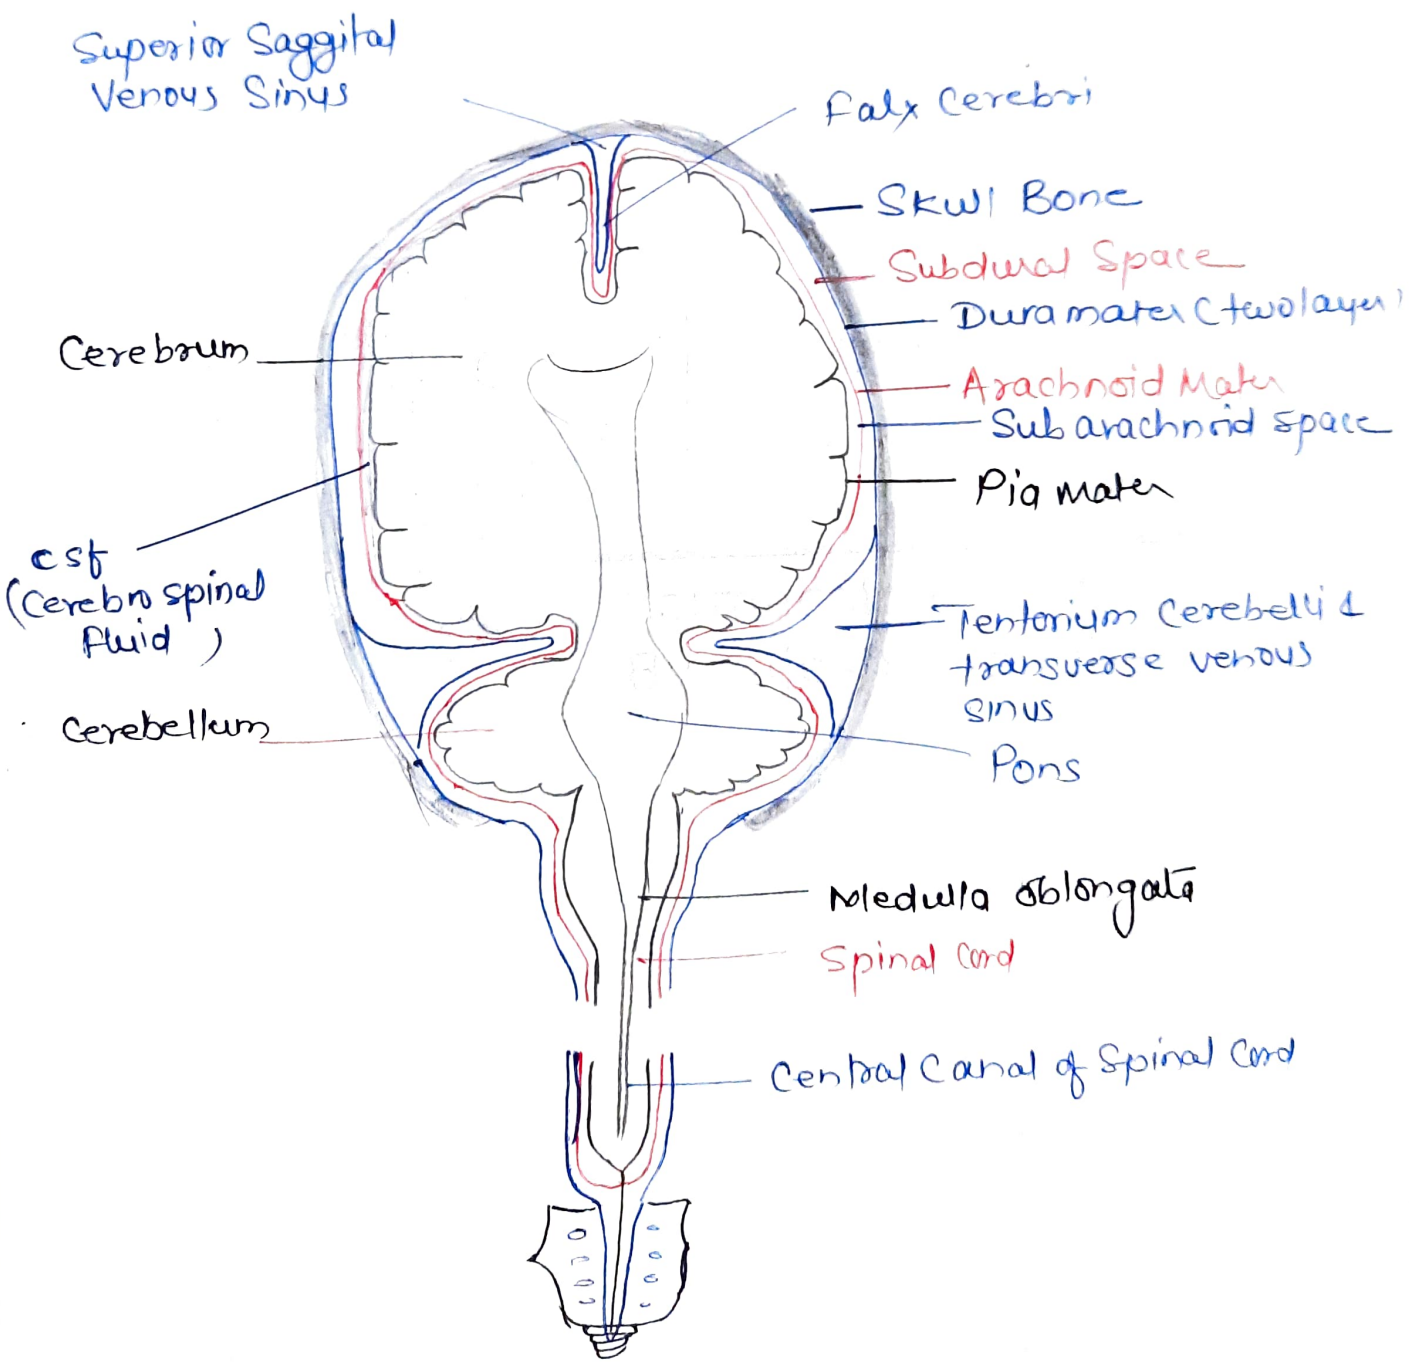 Superior Saggital
Venous Sinus
Falx Cerebri
Skull Bone
Subdural Space
Dura mater (two layer)
Arachnoid Mater
Sub arachnoid space
Pia mater
Cerebrum
csf
(Cerebro spinal
fluid )
Tentorium Cerebelli &
transverse venous
sinus
Cerebellum
Pons
Medulla oblongata
Spinal Cord
Central Canal of Spinal Cord